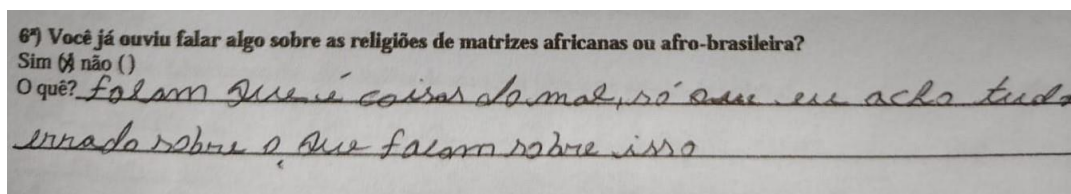 6ª) Você já ouviu falar algo sobre as religiões de matrizes africanas ou afro-brasileira?
Sim (x) não ( )
O quê? falam que é coisas do mal, só que eu acho tudo
errado sobre o que falam sobre isso